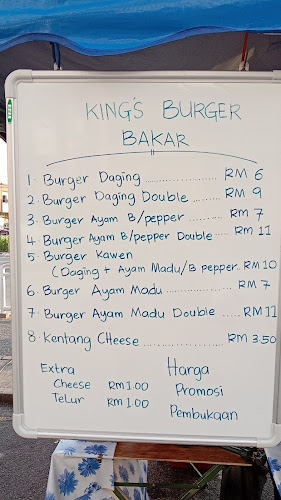 KING'S BURGER
BAKAR
1. Burger Daging .................... RM 6
2. Burger Daging Double .......... RM 9
3. Burger Ayam B/pepper ......... RM 7
4. Burger Ayam B/pepper Double ... RM 11
5. Burger Kawen
(Daging + Ayam Madu/B pepper.. RM 10
6. Burger Ayam Madu ............. RM 7
7. Burger Ayam Madu Double ..... RM 11
8. Kentang Cheese .................. RM 3.50
Extra
Cheese RM 1.00
Telur RM 1.00
Harga
Promosi
Pembukaan